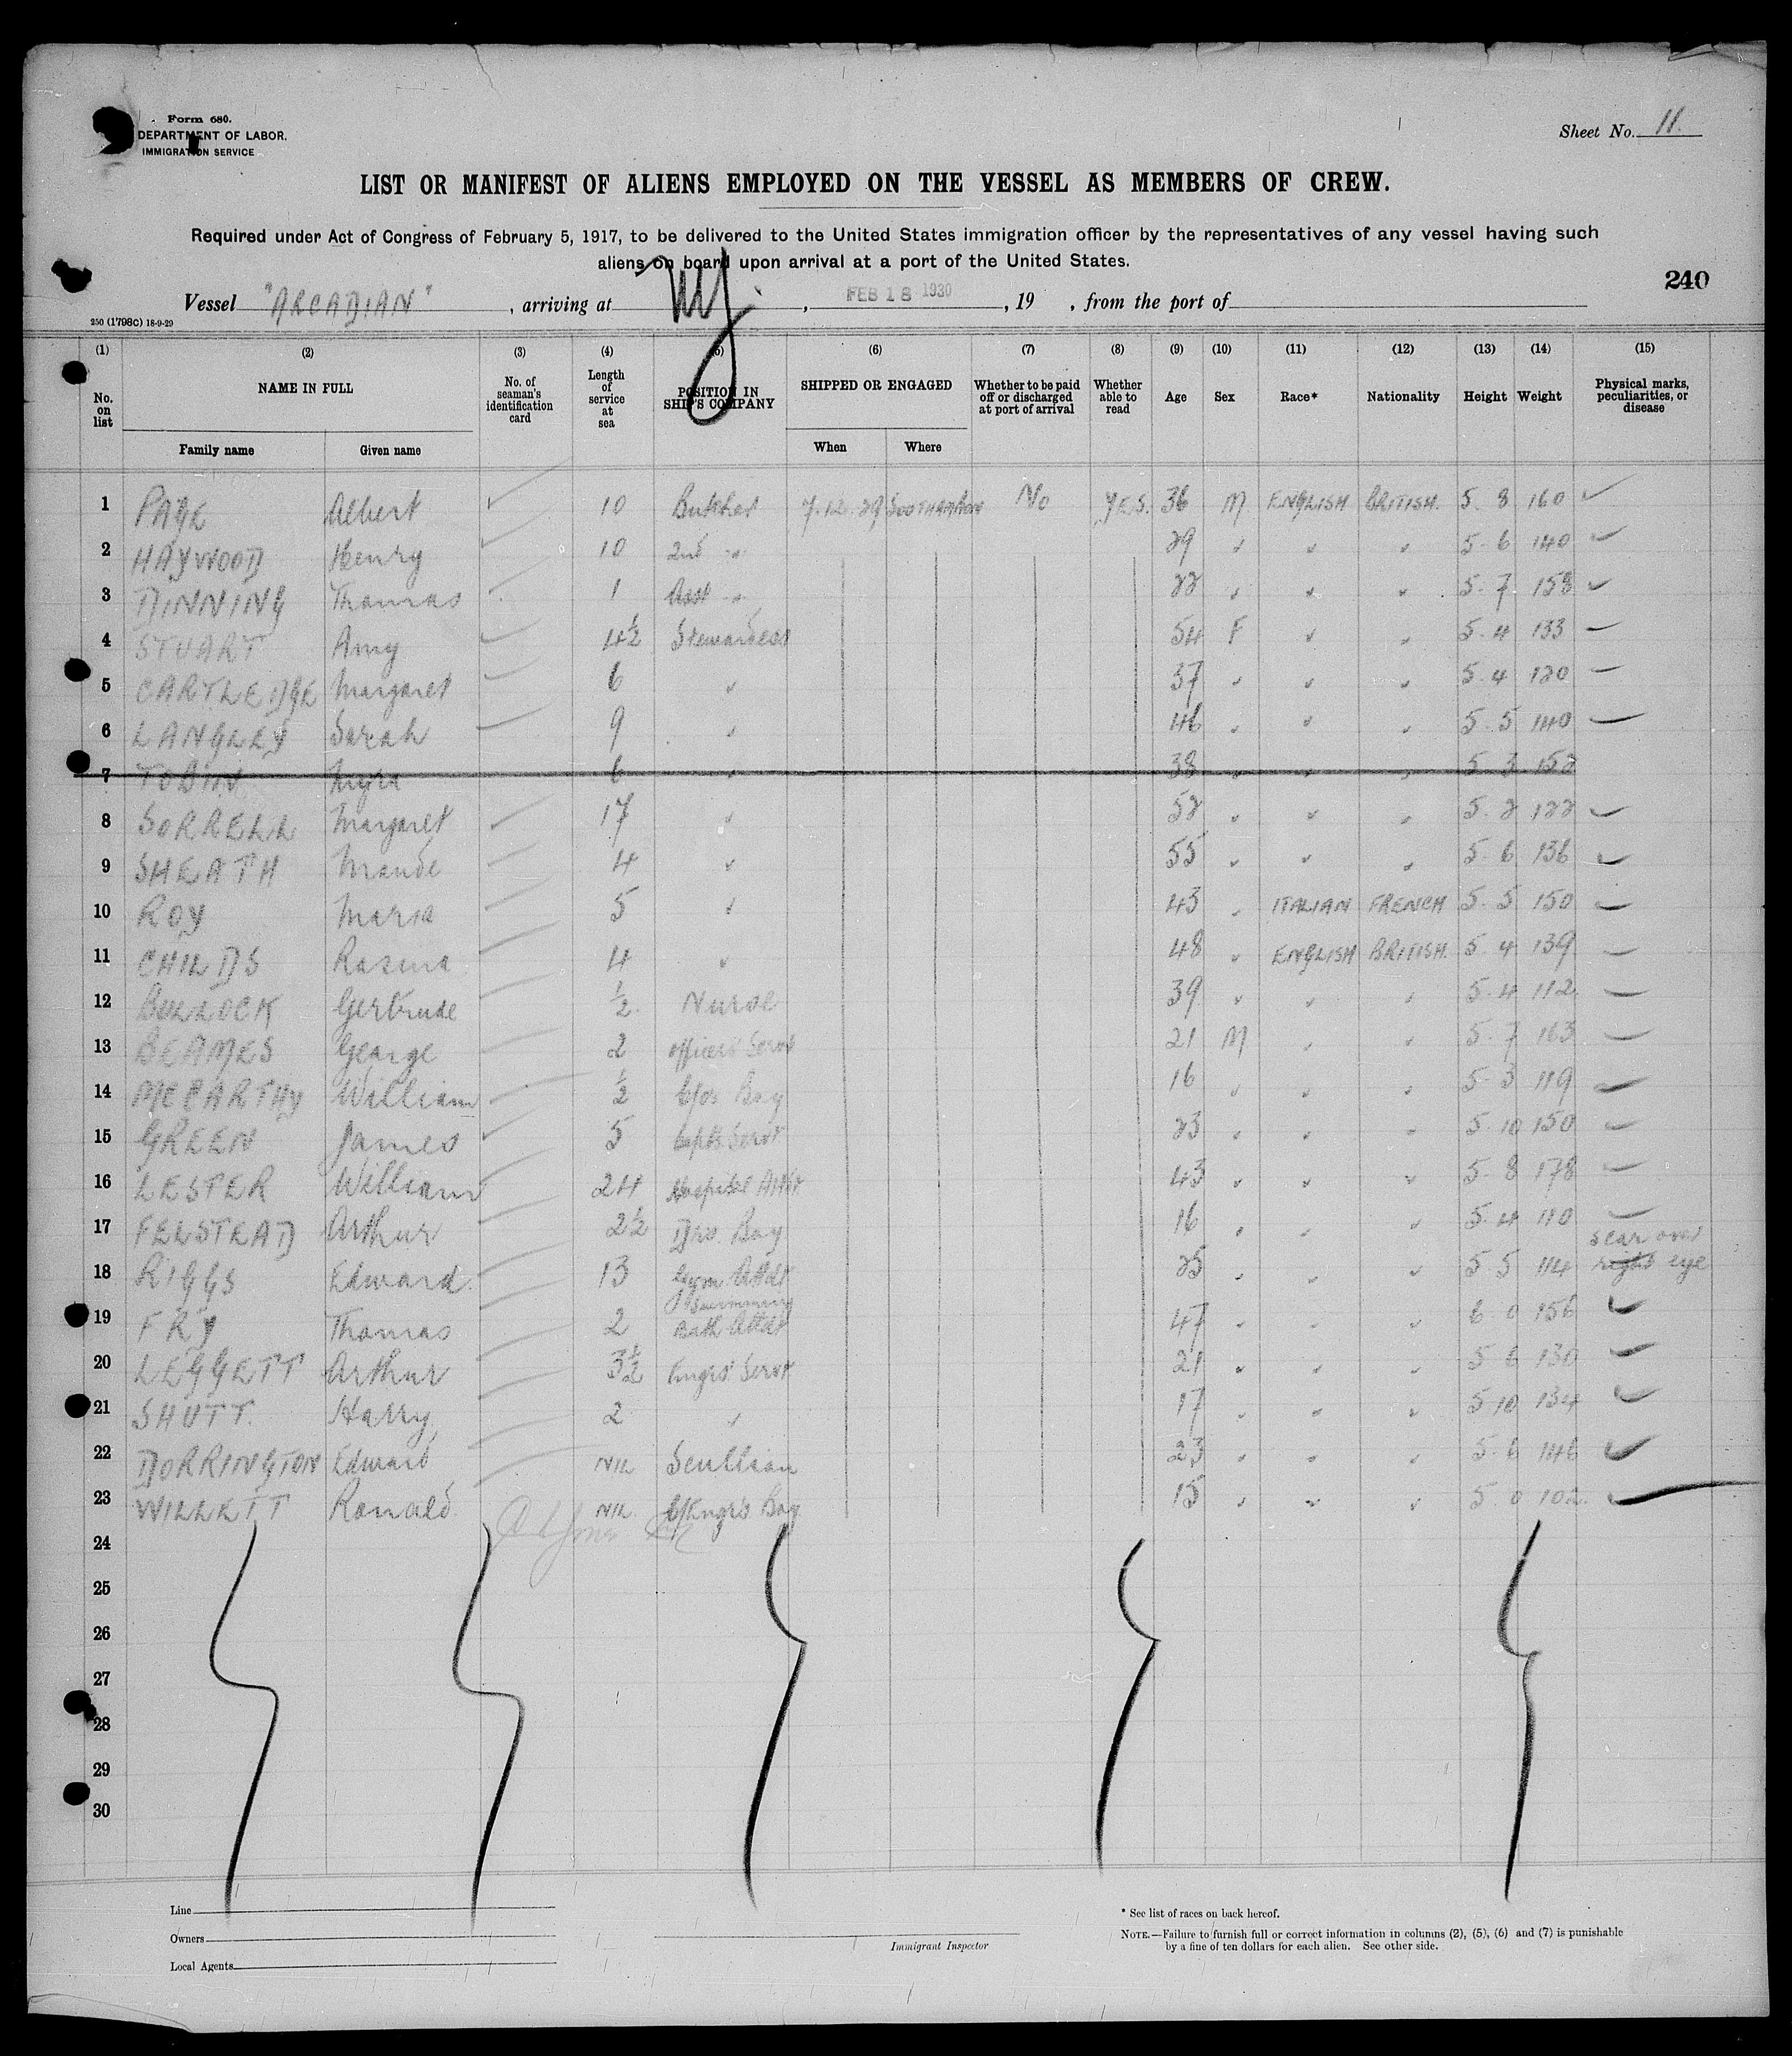 Form 680.
DEPARTMENT OF LABOR.
IMMIGRATION SERVICE
Sheet No. 11.
LIST OR MANIFEST OF ALIENS EMPLOYED ON THE VESSEL AS MEMBERS OF CREW.
Required under Act of Congress of February 5, 1917, to be delivered to the United States immigration officer by the representatives of any vessel having such
aliens on board upon arrival at a port of the United States.
240
Vessel "ARCADIAN", arriving at NY, FEB 18 1930, 19 , from the port of
250 (1798C) 18-9-29
(1) (2) (3) (4) (5) (6) (7) (8) (9) (10) (11) (12) (13) (14) (15)
No. on list NAME IN FULL No. of seaman's identification card Length of service at sea POSITION IN SHIP'S COMPANY SHIPPED OR ENGAGED Whether to be paid off or discharged at port of arrival Whether able to read Age Sex Race* Nationality Height Weight Physical marks, peculiarities, or disease
Family name Given name When Where
1 PAGE Albert 10 Butcher 7.12.29 SOUTHAMPTON No YES. 36 M ENGLISH BRITISH. 5 8 160
2 HAYWOOD Henry 10 2nd " 29 5-6 140
3 DINNING Thomas 1 Asst " 22 5-7 158
4 STUART Amy 4½ Stewardess 54 F 5-4 133
5 CARTLEDGE Margaret 6 37 5-4 120
6 LANGLEY Sarah 9 46 5-5 140
7 TOBIN 6 38 5 3 152
8 SORRELL Margaret 17 52 5-2 122
9 SHEATH Maude 4 55 5-6 136
10 ROY Maria 5 43 ITALIAN FRENCH 5-5 150
11 CHILDS Rasina 4 48 ENGLISH BRITISH. 5 4 139
12 BULLOCK Gertrude ½ Nurse 39 5-4 112
13 BEAMES George 2 Officers' Servt 21 M 5-7 163
14 MCCARTHY William ½ Boy 16 5-3 119
15 GREEN James 5 Capts. Servt 23 5-10 150
16 LESTER William 24 Hospital Attdt 43 5 8 178
17 FELSTEAD Arthur 2½ Drs. Boy 16 5-4 110
18 RIGGS Edward 13 Gym Attdt 25 5 5 114 scar over right eye
19 FRY Thomas 2 Swimming Bath Attdt 47 6 0 156
20 LEGGETT Arthur 3½ Engrs' Servt 21 5 6 130
21 SHUTT. Harry 2 17 5 10 134
22 DORRINGTON Edward NIL Scullion 23 5-6 146
23 WILLETT Ronald NIL C/Engrs. Boy 15 5 0 102
24
25
26
27
28
29
30
Line
Owners
Local Agents
Immigrant Inspector
* See list of races on back hereof.
NOTE.—Failure to furnish full or correct information in columns (2), (5), (6) and (7) is punishable
by a fine of ten dollars for each alien. See other side.